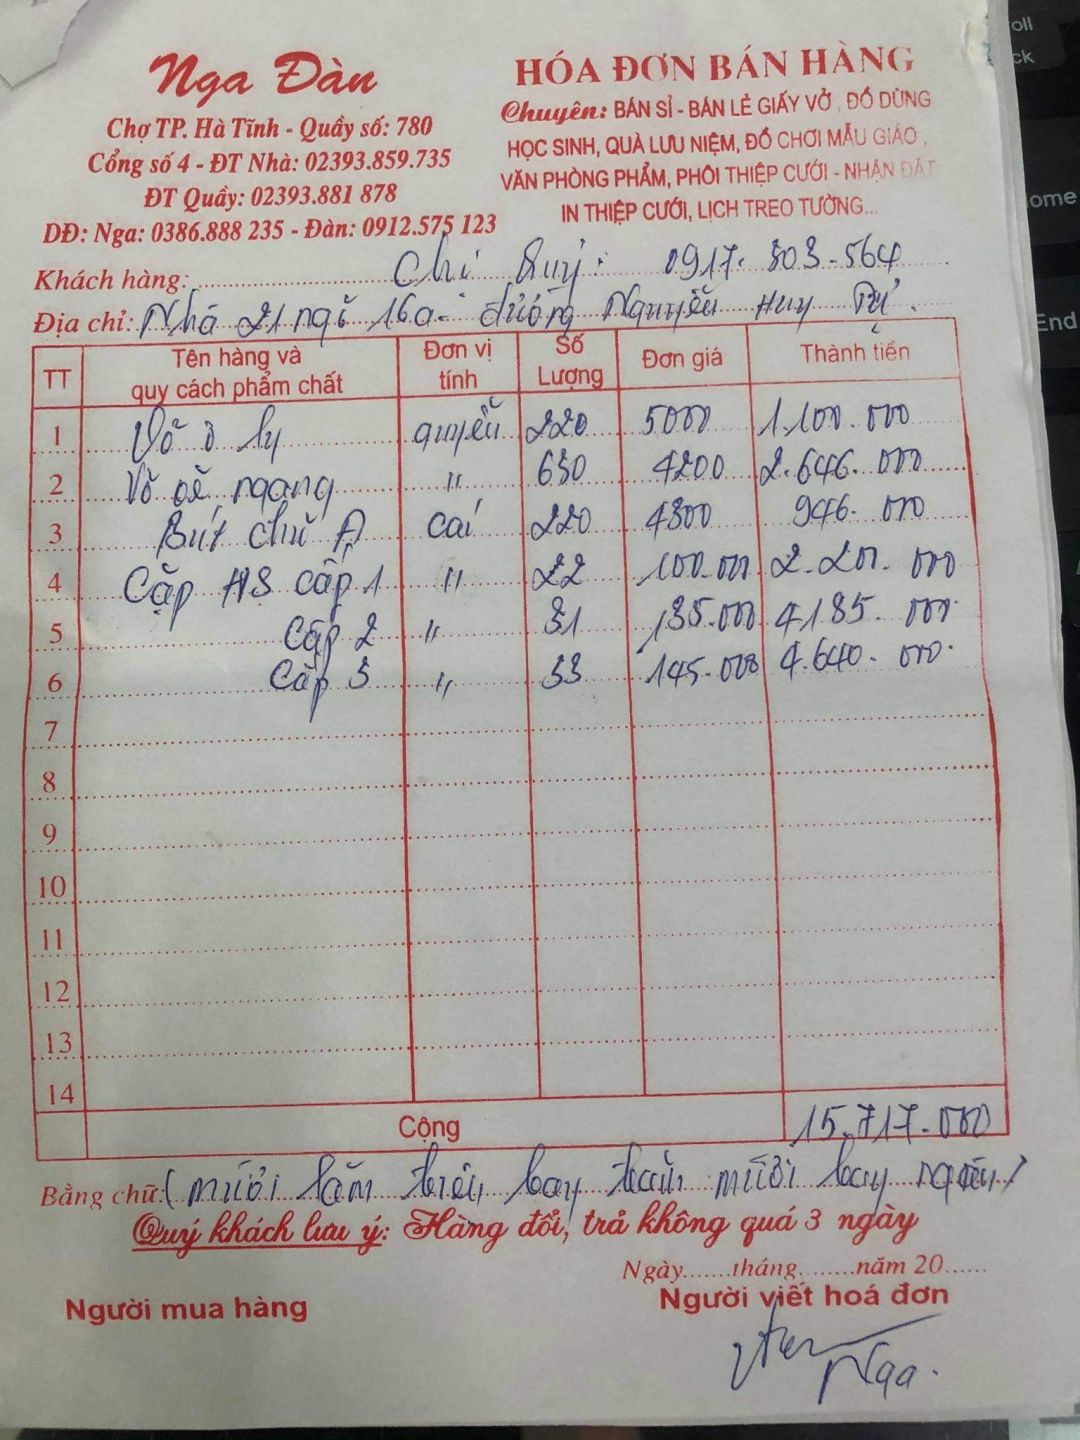 Nga Đàn
Chợ TP. Hà Tĩnh - Quầy số: 780
Cổng số 4 - ĐT Nhà: 02393.859.735
ĐT Quầy: 02393.881 878
DĐ: Nga: 0386.888 235 - Đàn: 0912.575 123
HÓA ĐƠN BÁN HÀNG
Chuyên: BÁN SỈ - BÁN LẺ GIẤY VỞ, ĐỒ DÙNG
HỌC SINH, QUÀ LƯU NIỆM, ĐỒ CHƠI MẪU GIÁO,
VĂN PHÒNG PHẨM, PHÔI THIỆP CƯỚI - NHẬN ĐẶT
IN THIỆP CƯỚI, LỊCH TREO TƯỜNG...
Khách hàng: Chi Quý: 0917.303-564
Địa chỉ: Nhà 21 ngõ 16a- đường Nguyễn Huy Tự.
TT Tên hàng và quy cách phẩm chất Đơn vị tính Số Lượng Đơn giá Thành tiền
1 Vở ô ly quyển 220 5000 1.100.000
2 Vở kẻ ngang " 630 4200 2.646.000
3 Bút chữ A cái 220 4300 946.000
4 Cặp HS cấp 1 " 22 100.000 2.200.000
5 Cấp 2 " 31 135.000 4.185.000
6 Cấp 3 " 33 145.000 4.640.000
7
8
9
10
11
12
13
14
Cộng 15.717.000
Bằng chữ: (mười lăm triệu bảy trăm mười bảy nghìn)
Quý khách lưu ý: Hàng đổi, trả không quá 3 ngày
Ngày.......tháng........năm 20......
Người mua hàng Người viết hoá đơn
Nga.